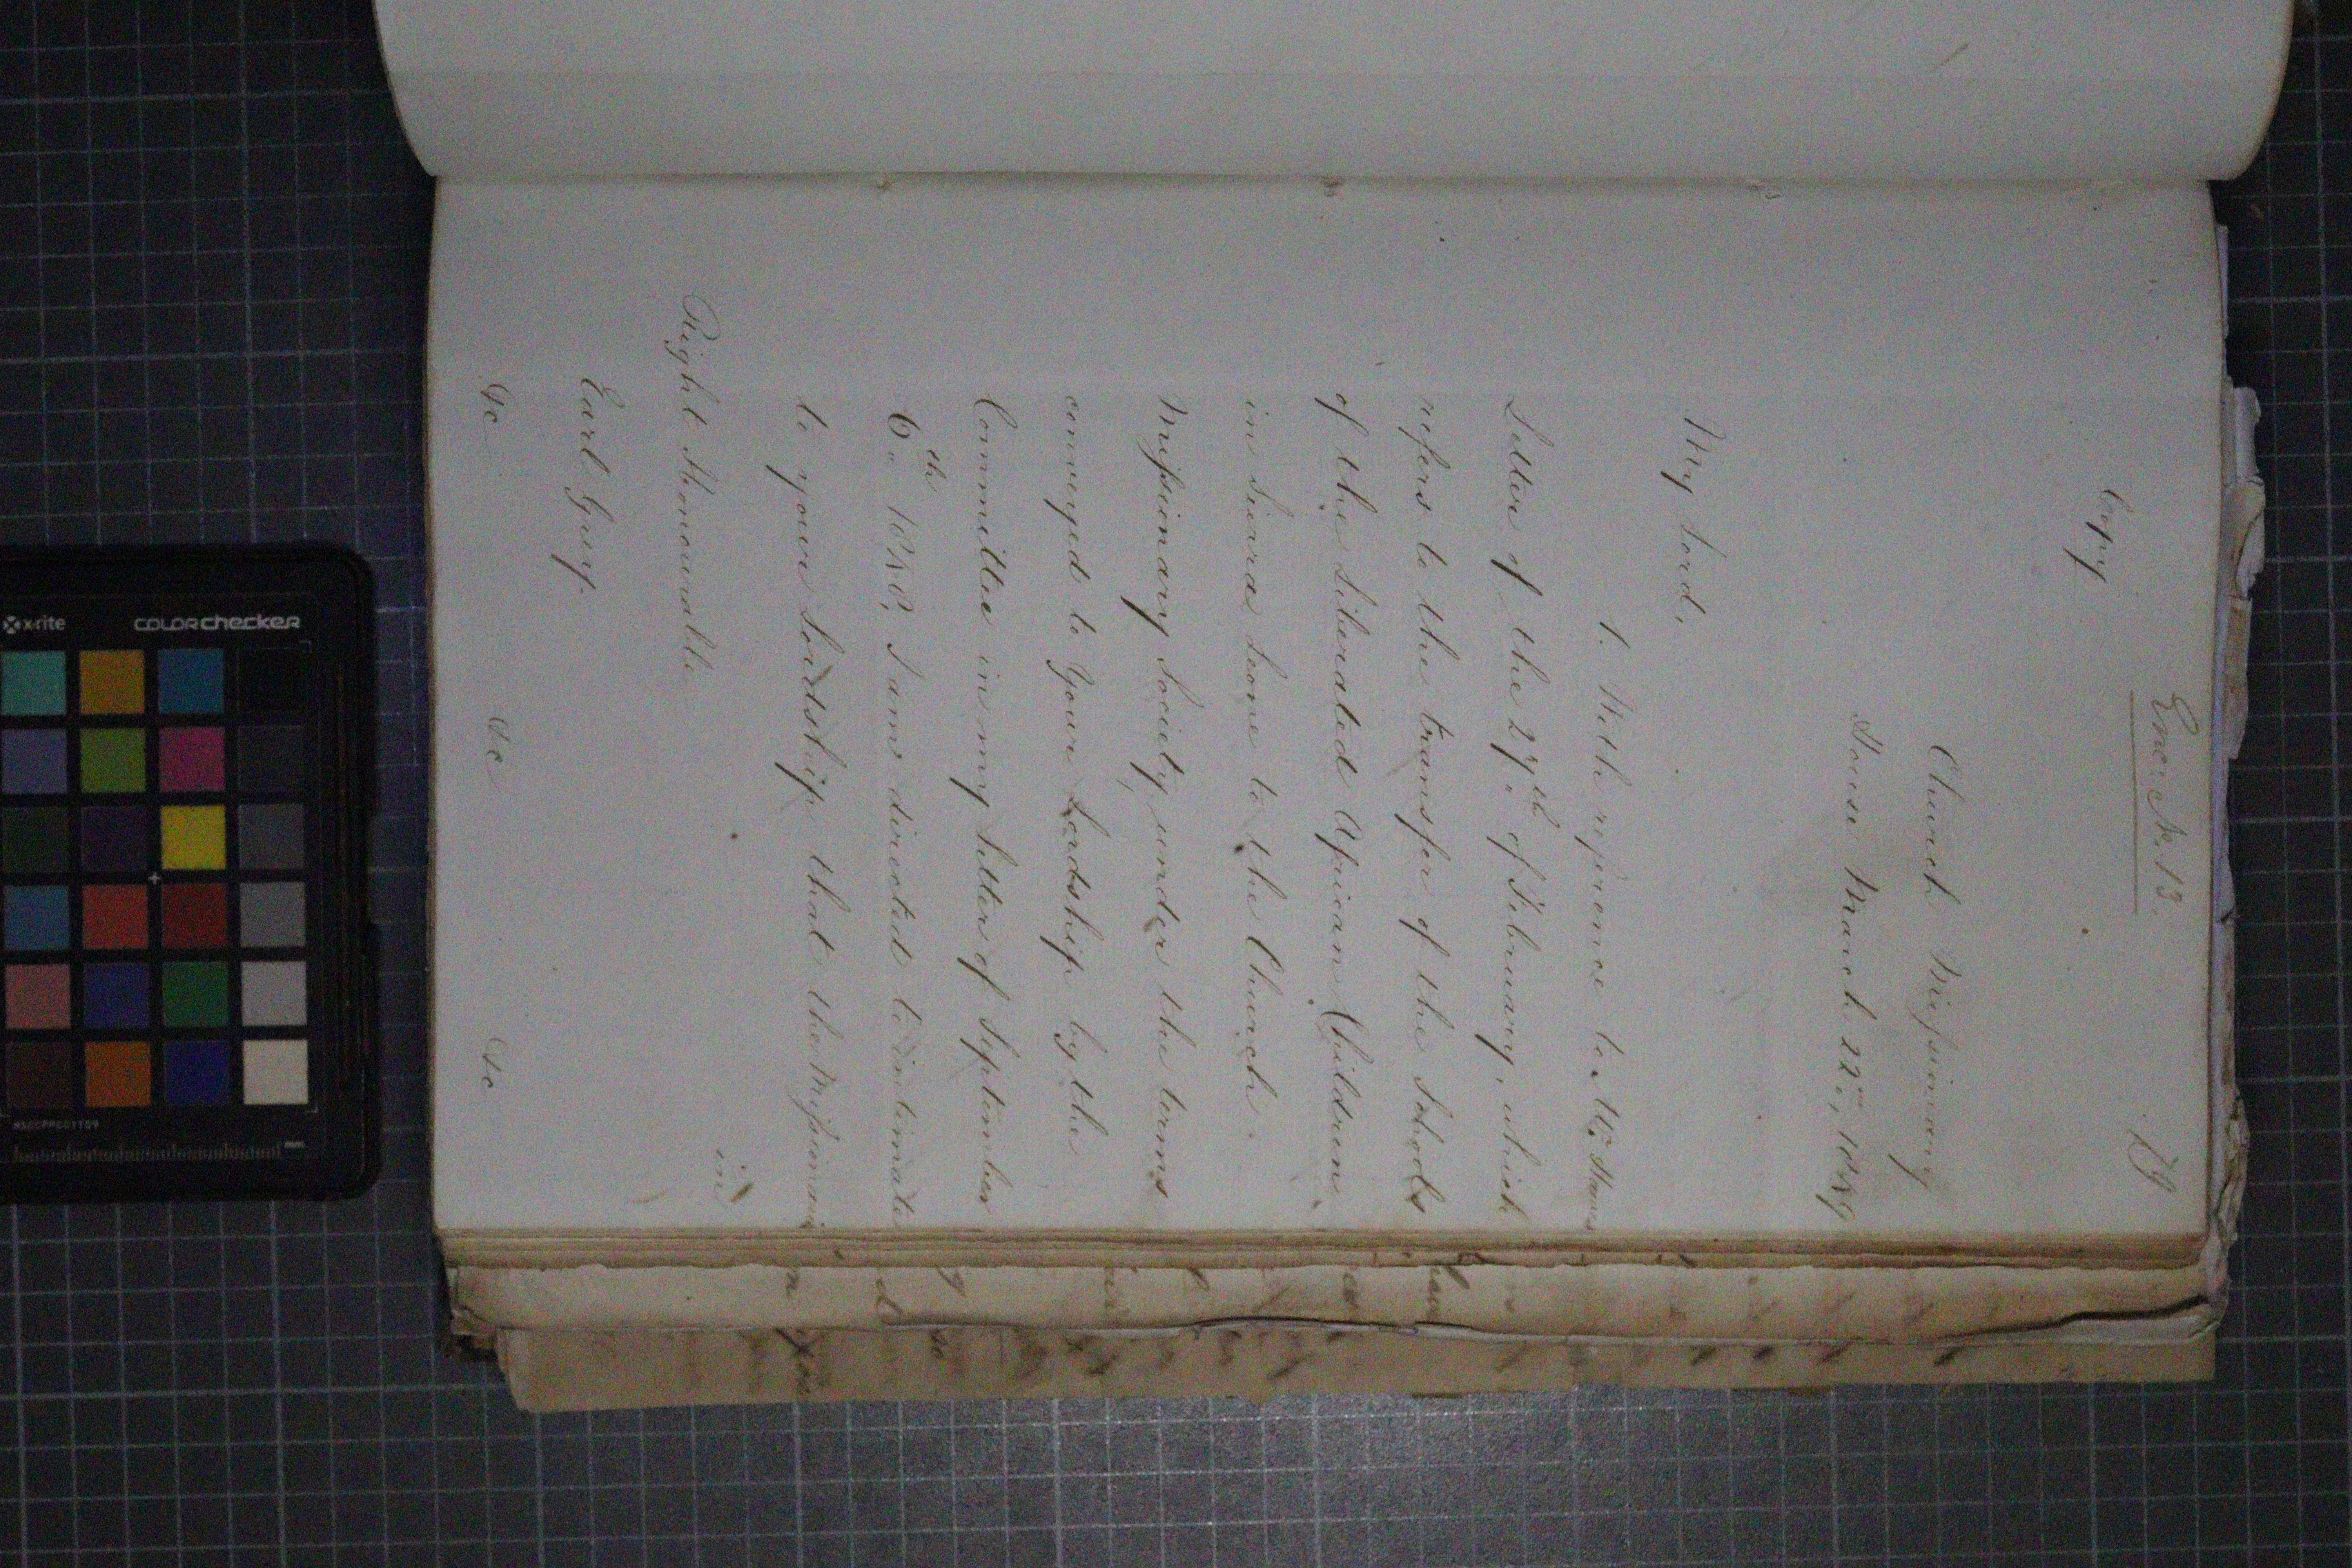 Enc: No. 13.
79
Copy
Church Missionary
House March 22nd, 1849
My Lord,
1. With reference to Mr. Hawes
Letter of the 27th of February, which
refers to the transfer of the Schools
of the Liberated African Children
in Sierra Leone to the Church
Missionary Society under the terms
conveyed to Your Lordship by the
Committee in my Letter of September
6th 1848, I am directed to intimate
to your Lordship that the Missionaries
in
Right Honourable
Earl Grey.
&c &c &c
x-rite colorchecker